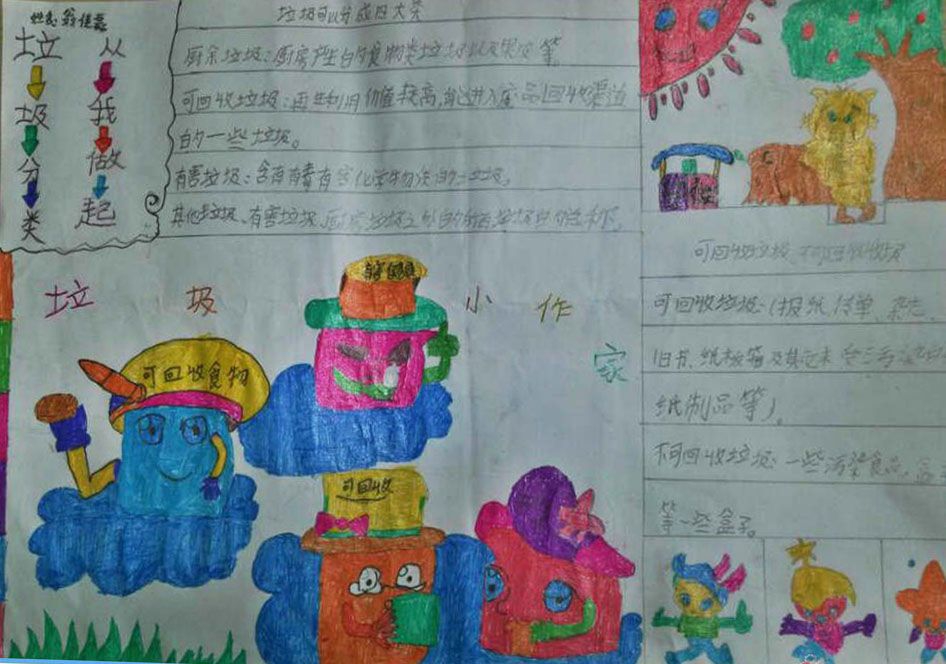 垃圾分类
从我做起
垃圾可以分成四大类
厨余垃圾:厨房产生的食物类垃圾以及果皮等
可回收垃圾:再生利用价值较高,能进入废品回收渠道
的一些垃圾。
有害垃圾:含有有毒有害化学物质的一垃圾。
其他垃圾、有害垃圾
垃 圾 小 作 家
可回收食物
可回收
可回收垃圾
可回收垃圾:(报纸、传单、杂志、
旧书、纸板箱及其它未
纸制品等)。
不可回收垃圾:一些污染食品、
等一些盒子。